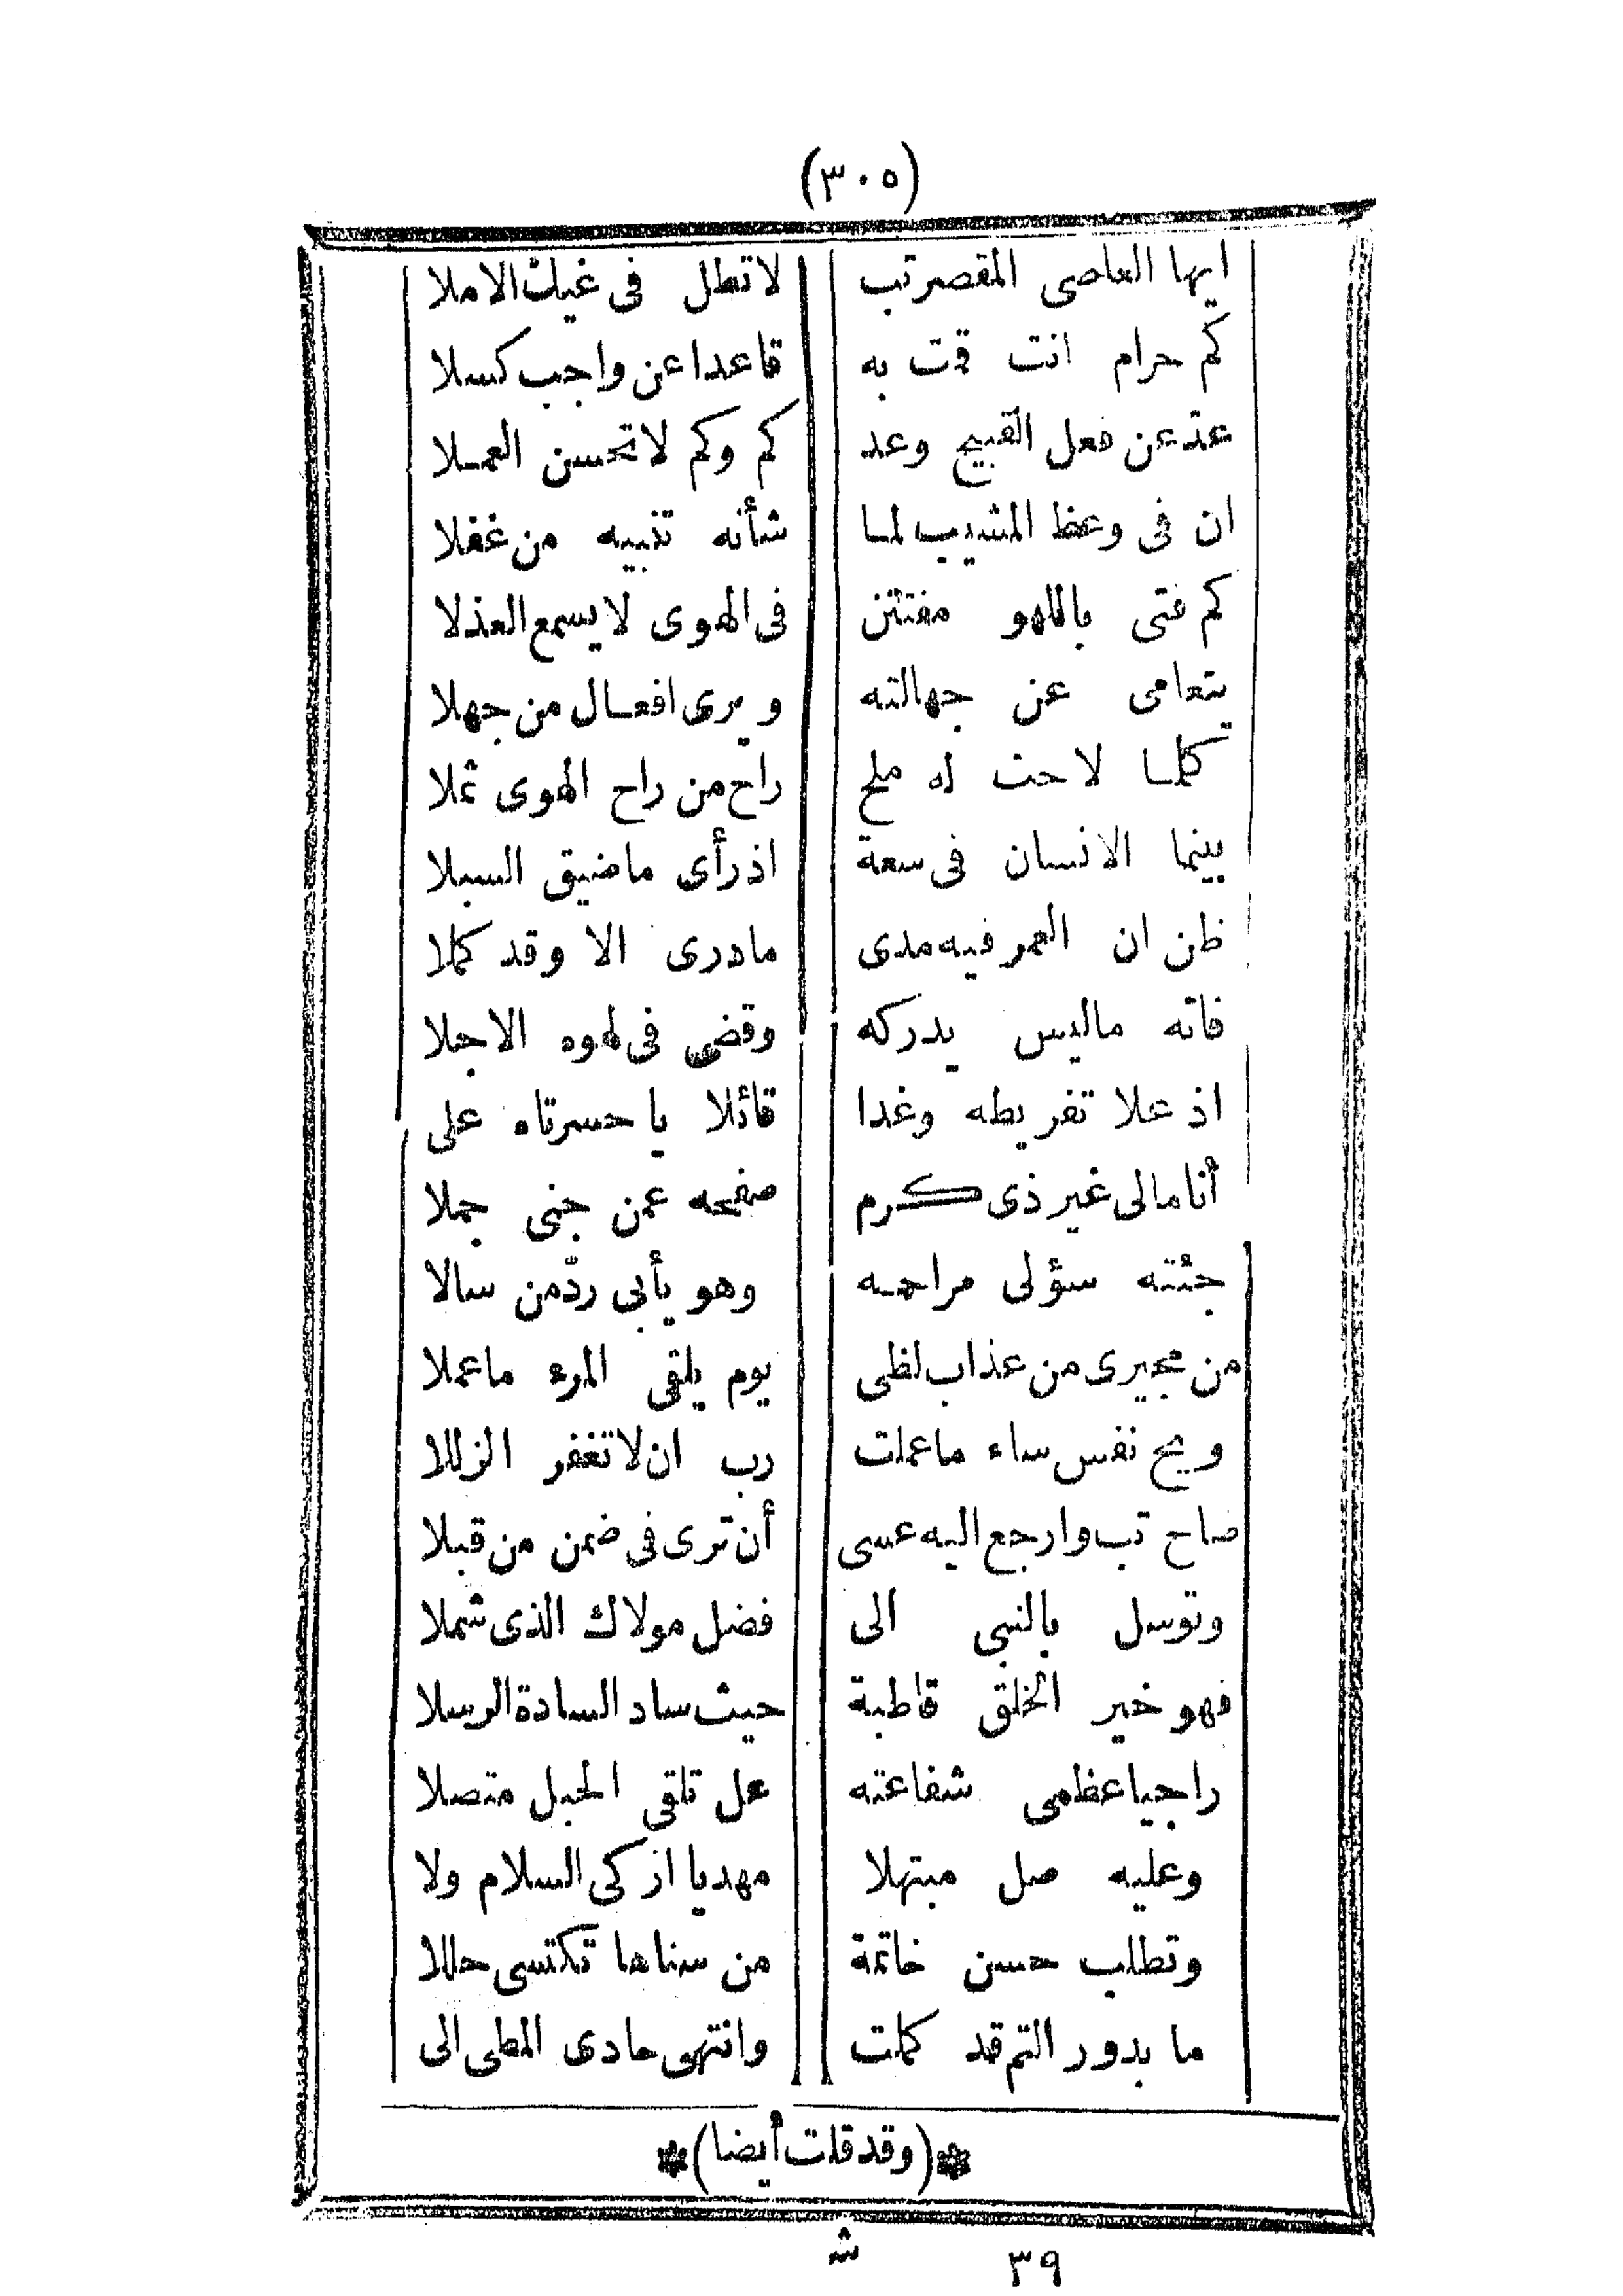 (٣٠٥)
ايها العاصى المقصر تب لا تطل فى غيك الاملا
كم حرام انت قمت به قاعدا عن واجب كسلا
عد عن فعل القبيح وعد كم وكم لا تحسن العملا
ان فى وعظ المشيب لما شأنه تنبيه من غفلا
كم فتى باللهو مفتتن فى الهوى لا يسمع العذلا
يتعامى عن جهالته ويرى افعال من جهلا
كلما لاحت له ملح راح من راح الهوى ثملا
بينما الانسان فى سعة اذ رأى ما ضيق السبلا
ظن ان العمر فيه مدى مادرى الا وقد كملا
فاته ماليس يدركه وقضى فى لهوه الاجلا
اذ علا تفريطه وغدا قائلا يا حسرتاه على
أنا مالى غير ذى كرم صفحه عمن جنى جملا
جئته سؤلى مراحمه وهو يأبى ردّ من سالا
من مجيرى من عذاب لظى يوم يلقى المرء ماعملا
ويح نفس ساء ماعملت رب ان لا تغفر الزللا
صاح تب وارجع اليه عسى أن ترى فى ضمن من قبلا
وتوسل بالنبى الى فضل مولاك الذى شملا
فهو خير الخلق قاطبة حيث ساد السادة الرسلا
راجيا عظمى شفاعته عل تلقى الحبل متصلا
وعليه صل مبتهلا مهديا ازكى السلام ولا
وتطلب حسن خاتمة من سناها تكتسى حللا
ما بدور التم قد كملت وانتهى حادى المطى الى
*(وقد قلت أيضا)*
٣٩ ش